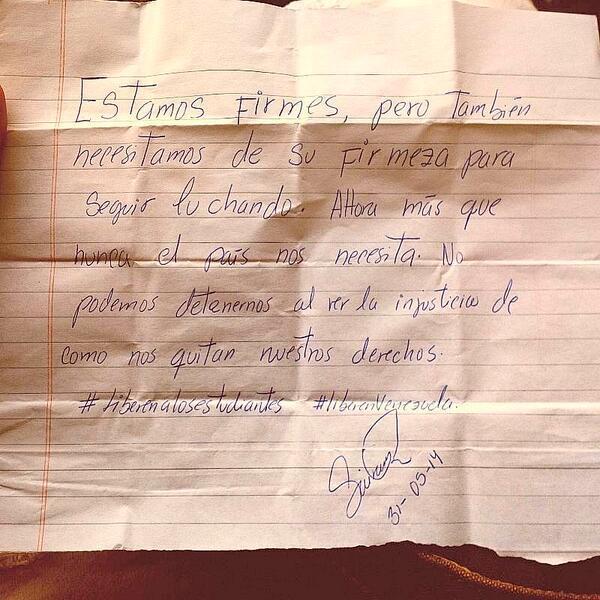 Estamos firmes, pero también
necesitamos de su firmeza para
seguir luchando. Ahora más que
nunca el país nos necesita. No
podemos detenernos al ver la injusticia de
como nos quitan nuestros derechos.
#liberenalosestudiantes #liberenVenezuela.
31-05-14